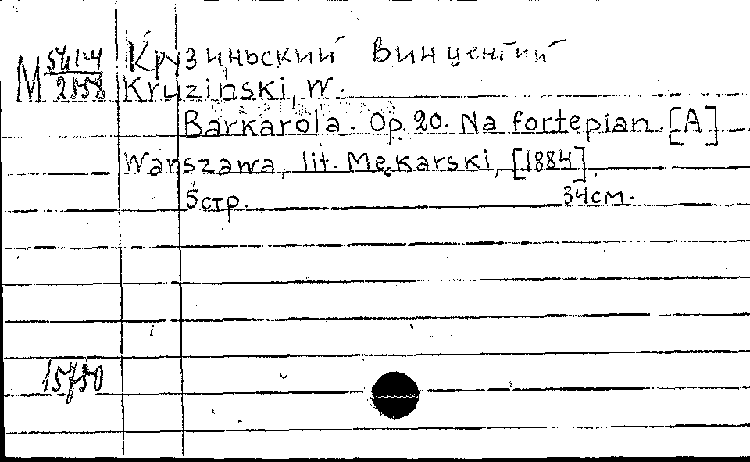 Крузиньский Винцентий
М
2158
Kruzinski, W.
Barkarola. Op. 20. Na fortepian. [A]
Warszawa, lit. Mękarski, [1884].
5стр. 34см.